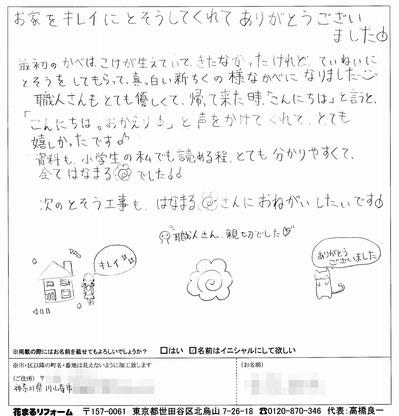 お家をキレイにとそうしてくれてありがとうござい
ました
最初のかべは、こけが生えていて、きたなかったけれど、ていねいに
とそうをしてもらって、真っ白い新ちくの様なかべになりました
職人さんもとても優しくて、帰って来た時、「こんにちは」と言うと、
「こんにちは。おかえり」と声をかけてくれて、とても
嬉しかったです
資料も、小学生の私でも読める程、とても分かりやすくて、
全てはなまるでした
次のとそう工事も、はなまるさんにおねがいしたいです
職人さん、親切でした
キレイ
ありがとう
ございました
※掲載の際にはお名前を載せてもよろしいでしょうか? □はい ☑名前はイニシャルにして欲しい
※市・区以降の町名・番地は見えないように加工致します
(ご住所) 〒
神奈川県 川崎市
(お名前)
花まるリフォーム 〒157-0061 東京都世田谷区北烏山7-26-18 ☎0120-870-346 代表:高橋良一